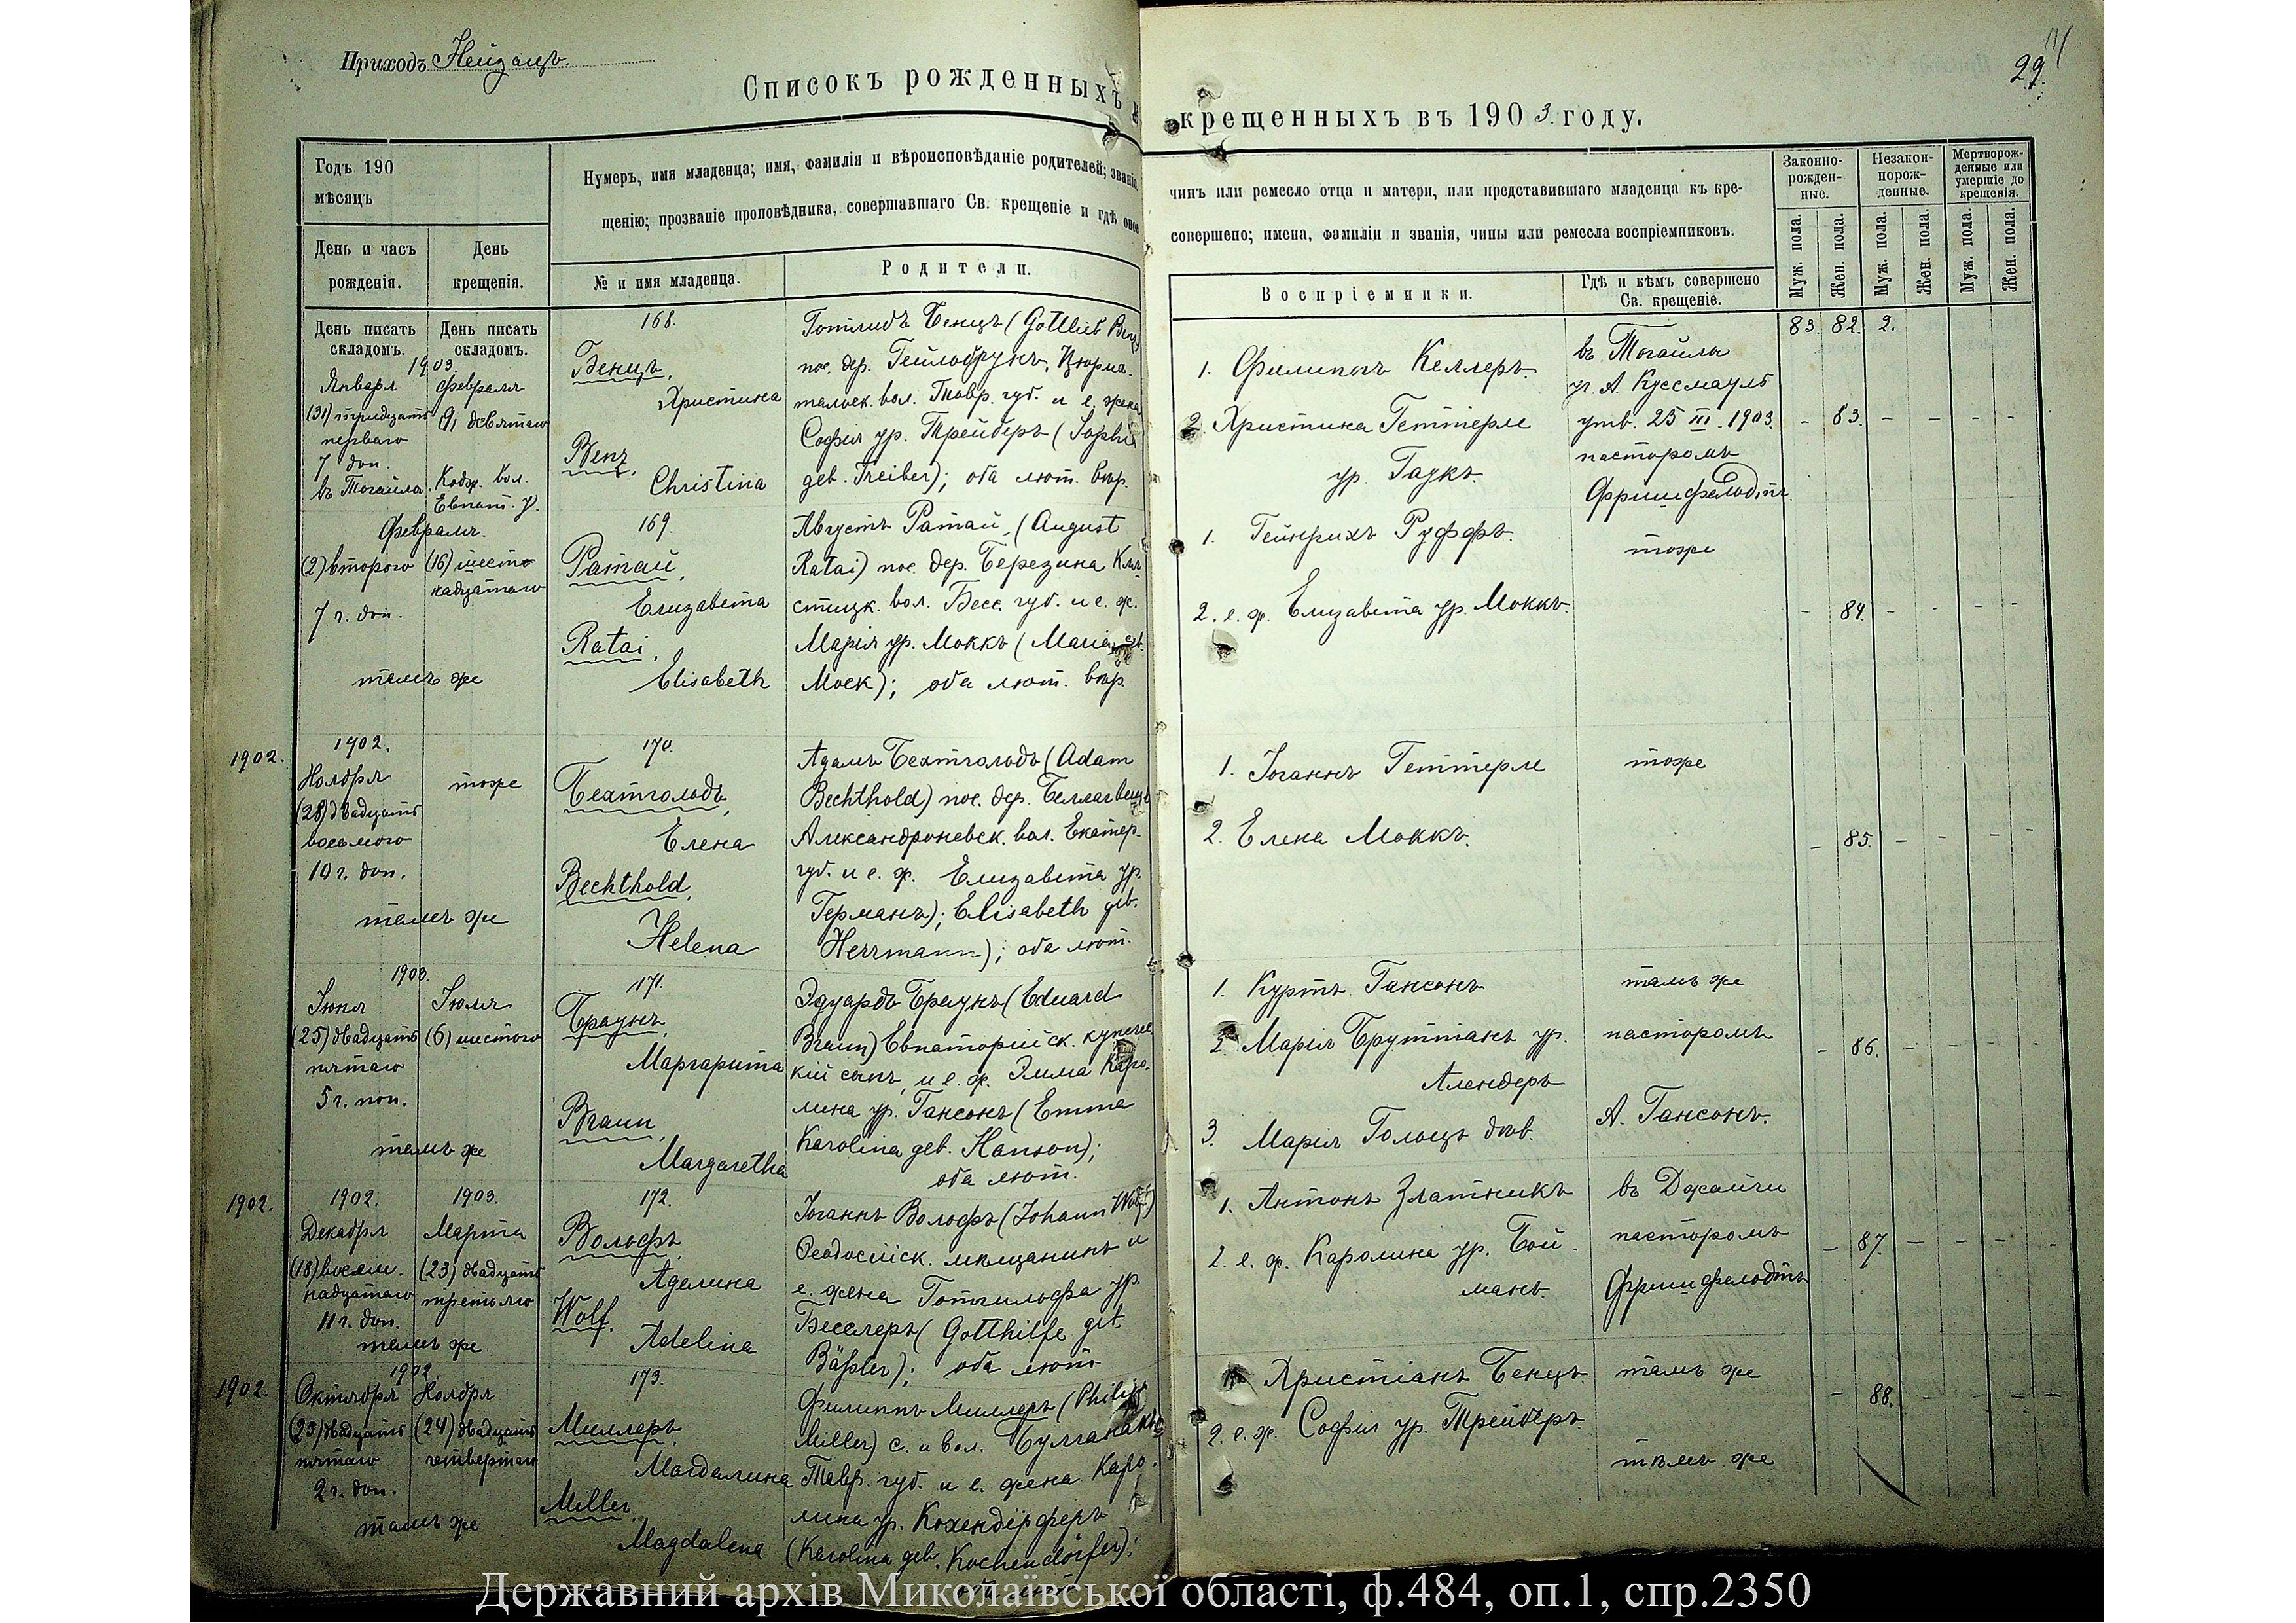 Приходъ Нейзацъ.
Списокъ рожденныхъ
крещенныхъ въ 1903 году.
29.
Годъ 190
мѣсяцъ
Нумеръ, имя младенца; имя, фамилія и вѣроисповѣданіе родителей; званіе,
щенію; прозваніе проповѣдника, совершавшаго Св. крещеніе и гдѣ оное
чинъ или ремесло отца и матери, или представившаго младенца къ кре-
совершено; имена, фамиліи и званія, чины или ремесла воспріемниковъ.
Законно-
рожден-
ные.
Незакон-
норож-
денные.
Мертворож-
денные или
умершіе до
крещенія.
День и часъ
рожденія.
День
крещенія.
№ и имя младенца.
Родители.
Воспріемники.
Гдѣ и кѣмъ совершено
Св. крещеніе.
Муж. пола.
Жен. пола.
Муж. пола.
Жен. пола.
Муж. пола.
Жен. пола.
День писать
складомъ.
День писать
складомъ.
83. 82. 2.
1903.
Января
(31) тридцать
перваго
7 доп.
въ Тогайла.
февраля
9, девятаго
Кодж. вол.
Евпат. у.
168.
Бенцъ,
Христина
Benz,
Christina
Готлибъ Бенцъ (Gottlieb Benz)
пос. дер. Гейльбрунъ, Цюрих-
тальск. вол. Тавр. губ. и е. жена
Софія ур. Трейберъ (Sophie
geb. Treiber); оба лют. вѣр.
1. Филиппъ Келлеръ.
2. Христина Геттерле
ур. Гаукъ.
въ Тогайла
уч. А. Куссмауль
утв. 25 III. 1903.
пасторомъ
Фришфельдтъ.
- 83. - - - -
Февраль.
(2) второго
7 ч. доп.
тамъ же
(16) шест-
надцатаго
169.
Ратай,
Елизавета
Ratai,
Elisabeth
Августъ Ратай, (August
Ratai) пос. дер. Березина Кля-
стицк. вол. Бесс. губ. и е. ж.
Марія ур. Моккъ (Maria geb.
Mock); оба лют. вѣр.
1. Гейнрихъ Руффъ.
2. е. ж. Елизавета ур. Моккъ.
тоже
- 84. - - - -
1902.
1902.
Ноября
(28) двадцать
восьмого
10 ч. доп.
тамъ же
тоже
170.
Бехтгольдъ,
Елена
Bechthold,
Helena
Адамъ Бехтгольдъ (Adam
Bechthold) пос. дер.
Александроневск. вол. Екатер.
губ. и е. ж. Елизавета ур.
Германъ); Elisabeth geb.
Herrmann); оба лют.
1. Іоганнъ Геттерле
2. Елена Моккъ.
тоже
- 85. - - - -
1903.
Іюня
(25) двадцать
пятаго
5 ч. поп.
тамъ же
Іюля
(6) шестого
171.
Браунъ,
Маргарита
Braun,
Margaretha
Эдуардъ Браунъ (Eduard
Braun) Евпаторійск. купечес-
кій сынъ, и е. ж. Эмма Каро-
лина ур. Гансонъ (Emma
Karolina geb. Hanson);
оба лют.
1. Куртъ Гансонъ
2. Марія Бруттанъ ур.
Алендеръ
3. Марія Гольцъ дѣв.
тамъ же
пасторомъ
А. Гансонъ.
- 86. - - - -
1902.
1902.
Декабря
(18) восем-
надцатаго
11 ч. доп.
тамъ же
1903.
Марта
(23) двадцать
третьяго
172.
Вольфъ,
Аделина
Wolf,
Adelina
Іоганнъ Вольфъ (Johann Wolf)
Ѳеодосійск. мѣщанинъ и
е. жена Готгильфа ур.
Бесслеръ (Gotthilfe geb.
Bäßler); оба лют.
1. Антонъ Златникъ
2. е. ж. Каролина ур. Бой-
манъ.
въ Джайчи
пасторомъ
Фришфельдтъ
- 87. - - - -
1902.
1902.
Октября
(25) двадцать
пятаго
2 ч. доп.
тамъ же
Ноября
(24) двадцать
четвертаго
173.
Миллеръ,
Магдалина
Miller,
Magdalena
Филиппъ Миллеръ (Philipp
Miller) с. и вол. Булганакъ
Тавр. губ. и е. жена Каро-
лина ур. Кохендёрферъ
(Karolina geb. Kochendörfer);
Христіанъ Бенцъ.
2. е. ж. Софія ур. Трейберъ.
тамъ же
тѣмъ же
- 88. - - - -
Державний архів Миколаївської області, ф.484, оп.1, спр.2350